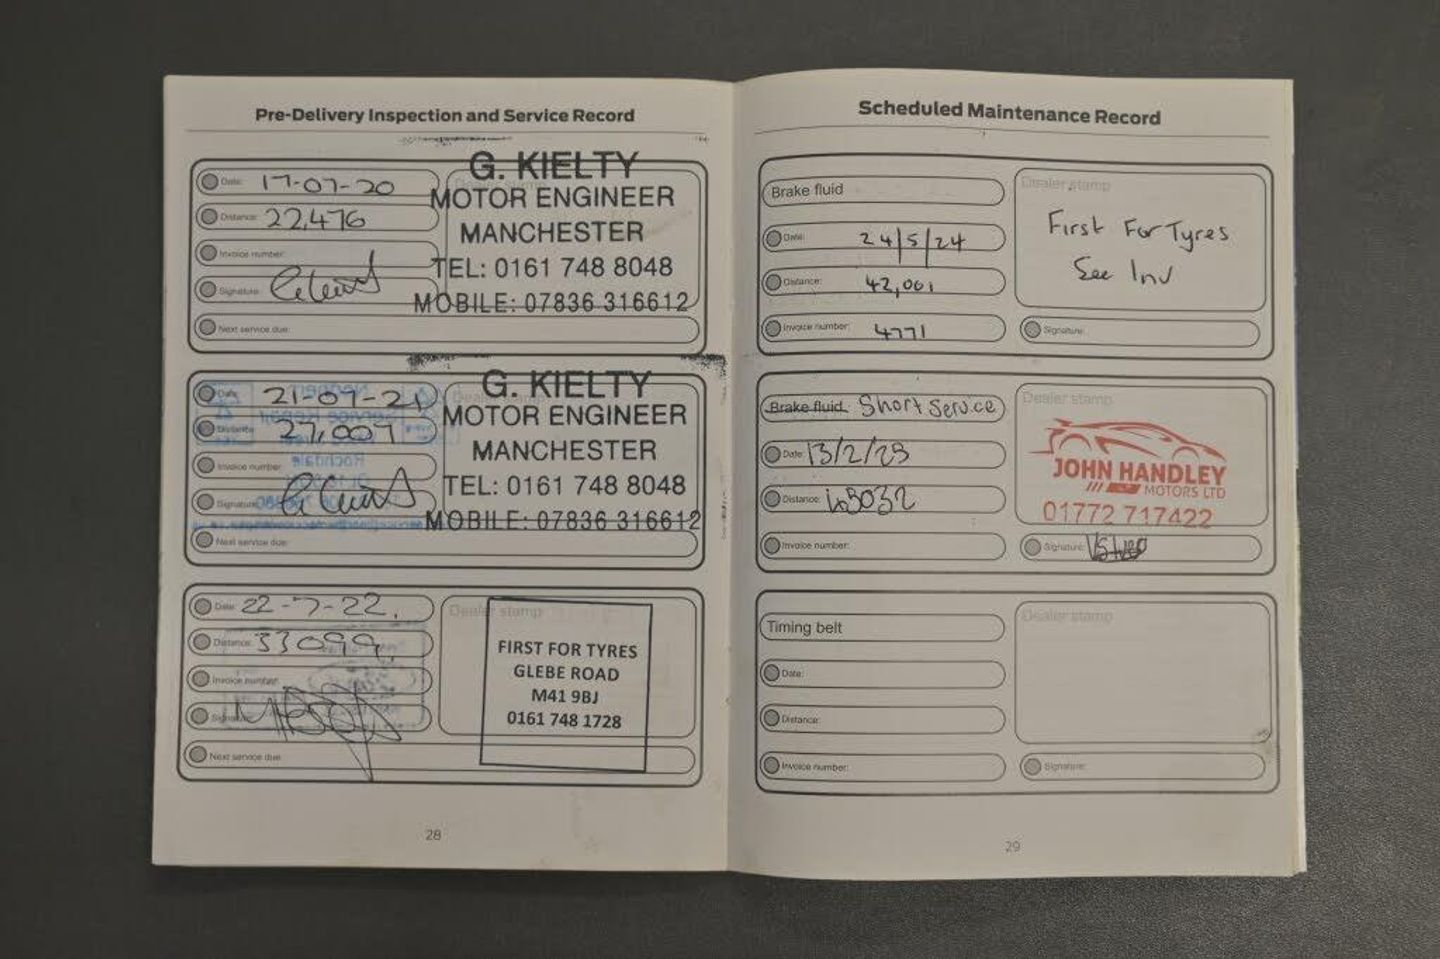 Pre-Delivery Inspection and Service Record
Date: 17-07-20
Distance: 22,476
Invoice number:
Signature:
Next service due:
Dealer stamp
G. KIELTY
MOTOR ENGINEER
MANCHESTER
TEL: 0161 748 8048
MOBILE: 07836 316612
Date: 21-09-21
Distance: 27,007
Invoice number:
Signature:
Next service due:
Dealer stamp
G. KIELTY
MOTOR ENGINEER
MANCHESTER
TEL: 0161 748 8048
MOBILE: 07836 316612
Date: 22-7-22.
Distance: 33099.
Invoice number:
Signature:
Next service due:
Dealer stamp
FIRST FOR TYRES
GLEBE ROAD
M41 9BJ
0161 748 1728
28
Scheduled Maintenance Record
Brake fluid
Date: 24/5/24
Distance: 42,001
Invoice number: 4771
Dealer stamp
First For Tyres
See Inv
Signature:
Brake fluid Short Service
Date: 13/2/25
Distance:
Invoice number:
Dealer stamp
JOHN HANDLEY
MOTORS LTD
01772 717422
Signature:
Timing belt
Date:
Distance:
Invoice number:
Dealer stamp
Signature:
29